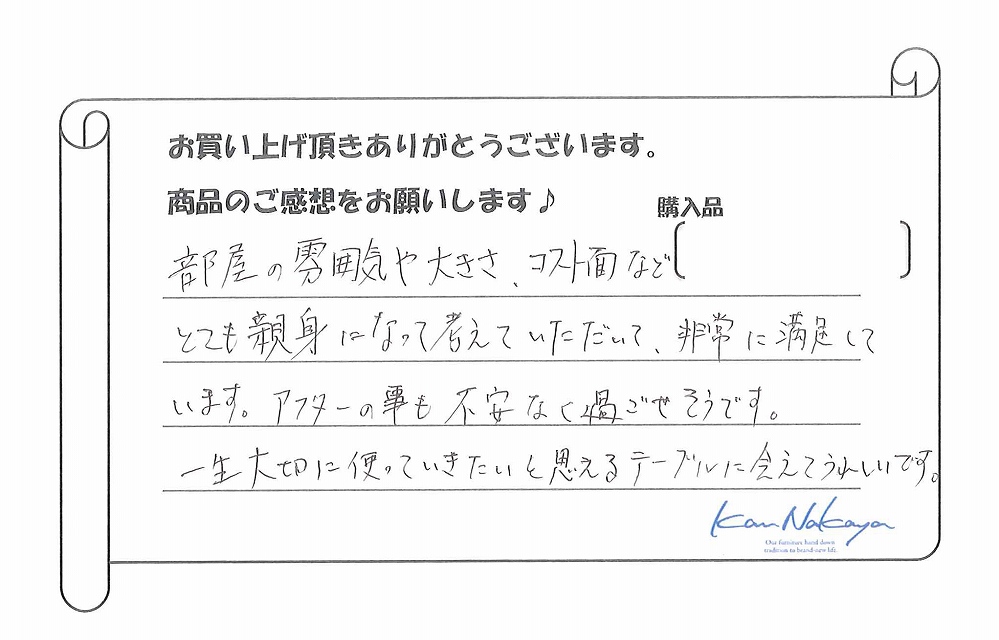 お買い上げ頂きありがとうございます。
商品のご感想をお願いします♪
購入品
部屋の雰囲気や大きさ、コスト面など
とても親身になって考えていただいて、非常に満足して
います。アフターの事も不安なく過ごせそうです。
一生大切に使っていきたいと思えるテーブルに会えてうれしいです。
Kan Nakaya
Our furniture hand down
tradition to brand-new life.